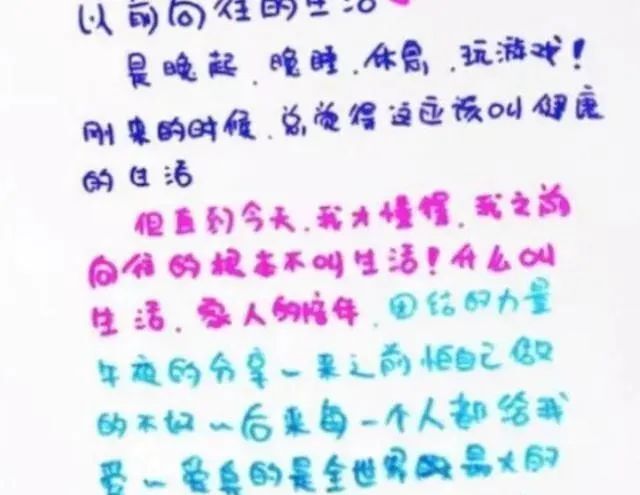 以前向往的生活
是晚起、晚睡、休息、玩游戏!
刚来的时候、总觉得这应该叫健康
的生活
但直到今天、我才懂得、我之前
向往的根本不叫生活!什么叫
生活、家人的陪伴、团结的力量
午夜的分享～来之前怕自己做
的不好～后来每一个人都给我
爱～爱真的是全世界最大的